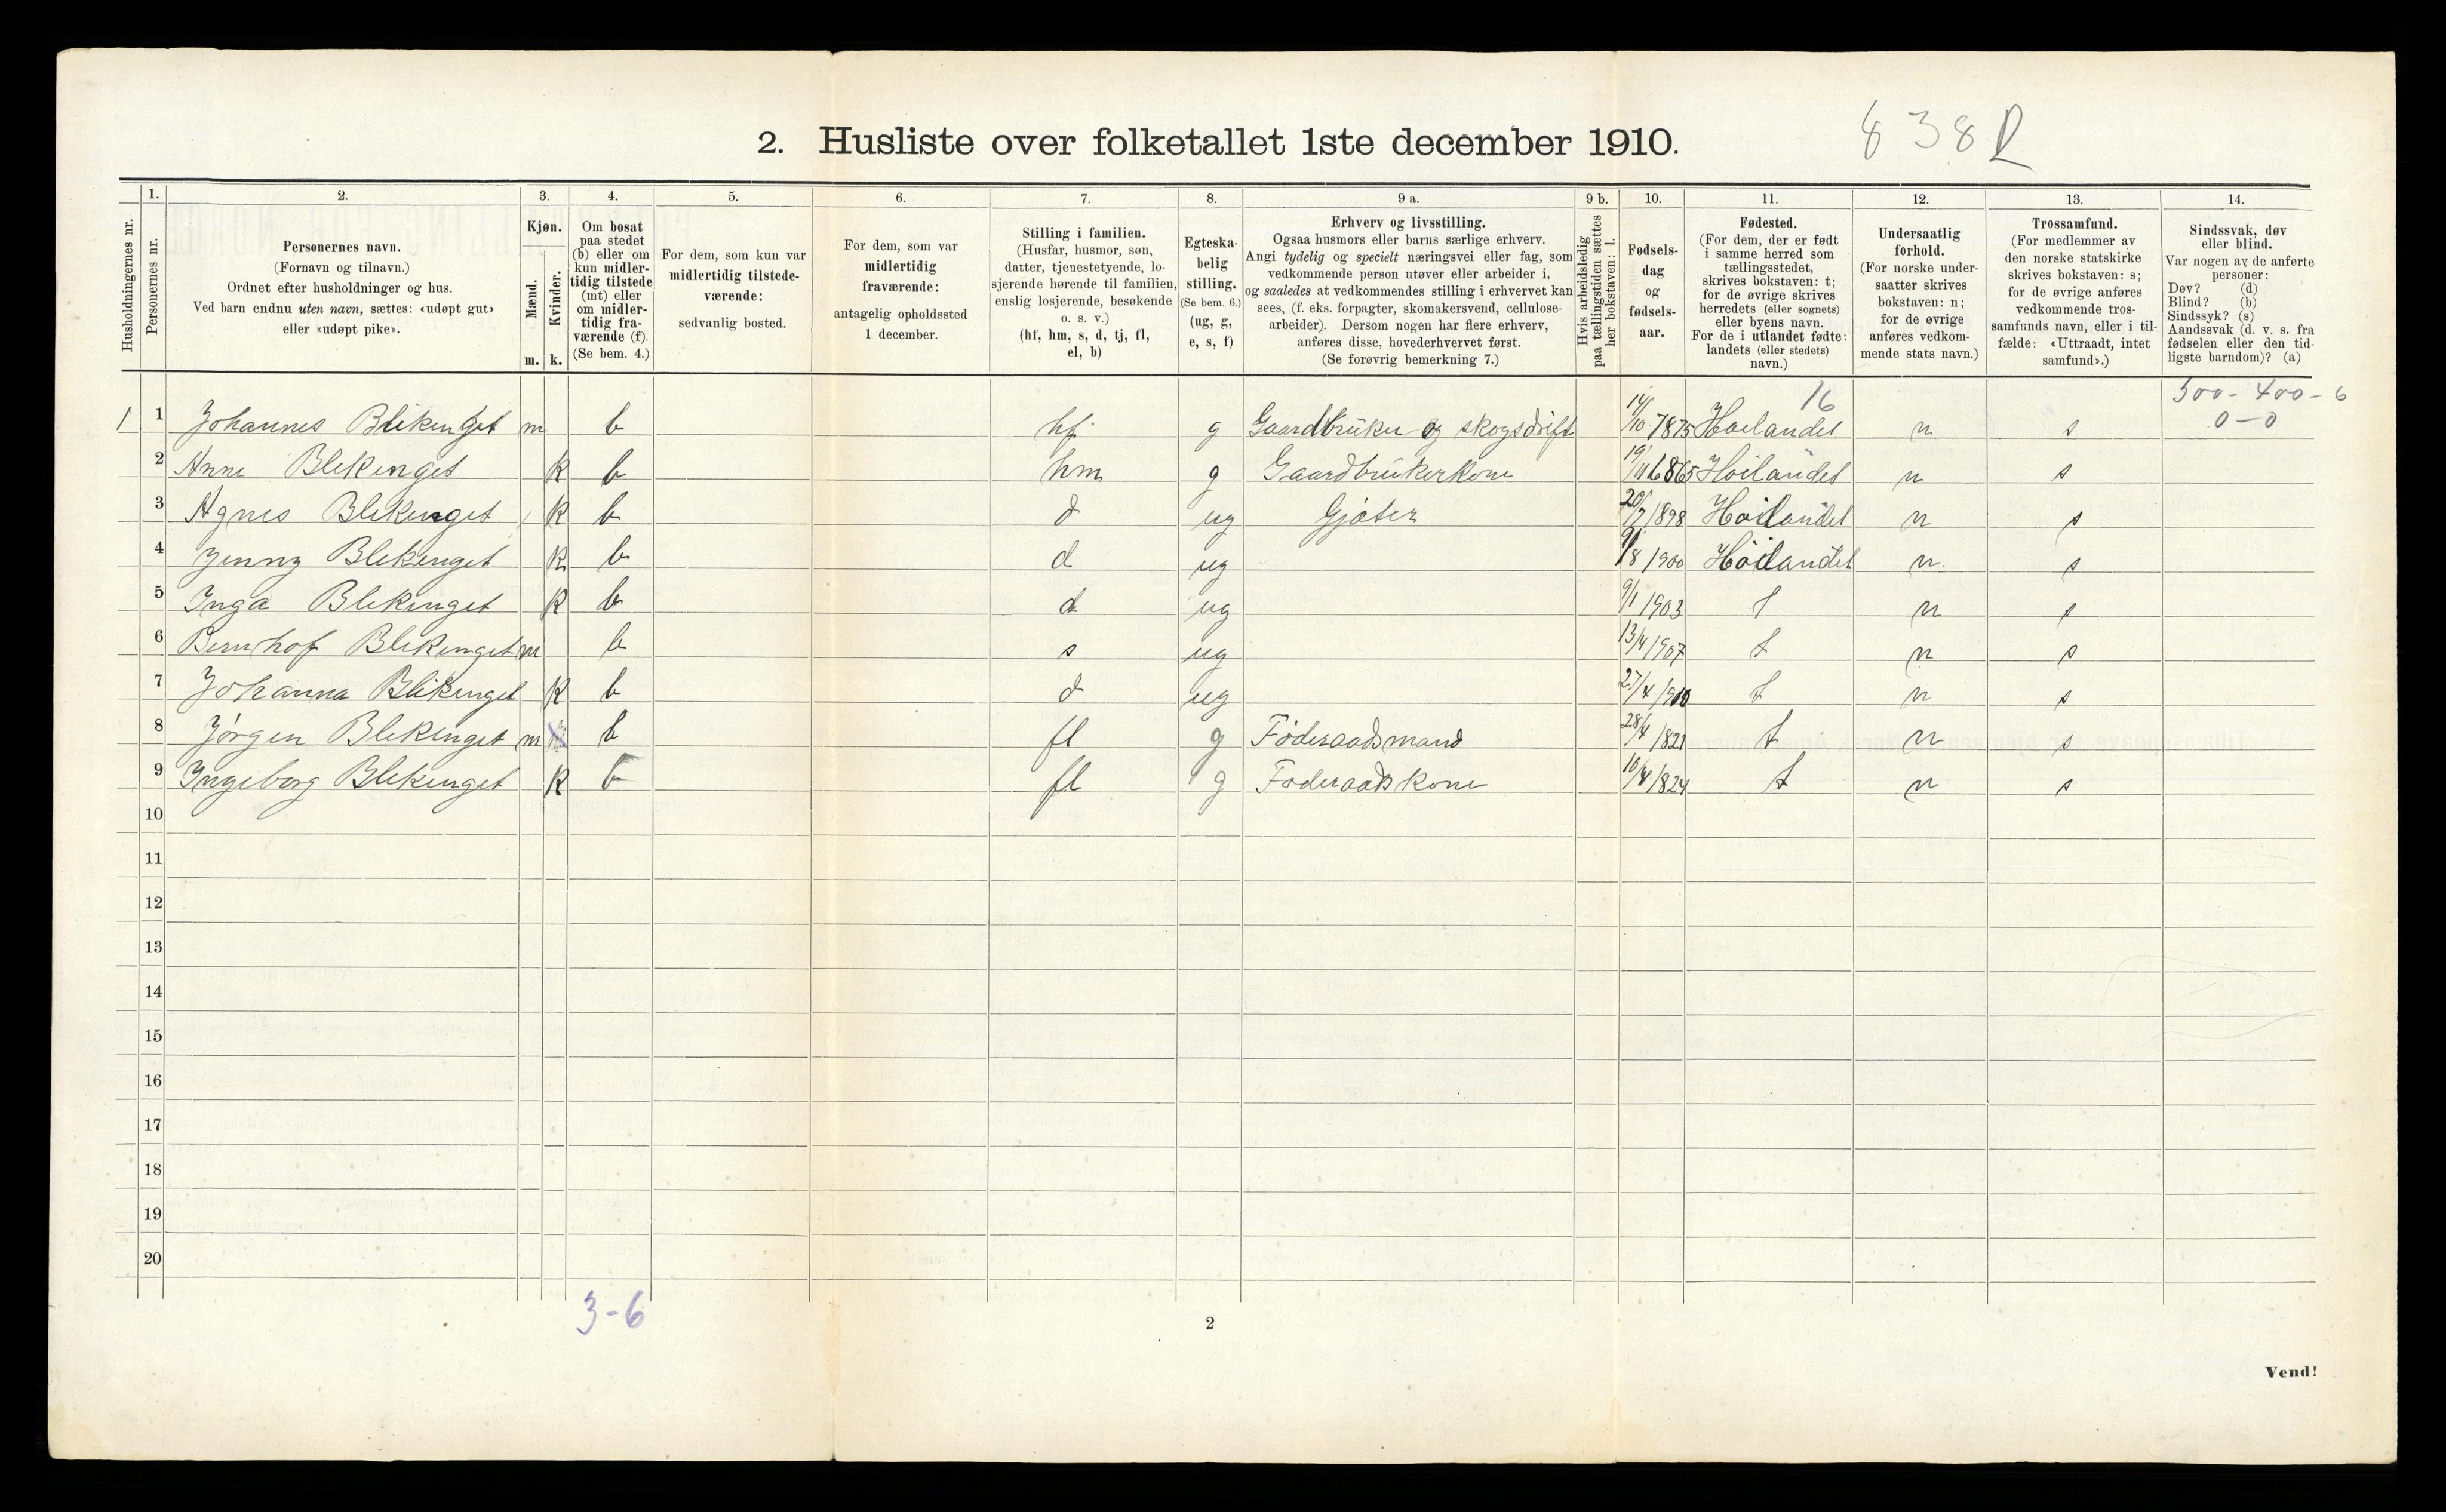 838 R
2. Husliste over folketallet 1ste december 1910.
Husholdningernes nr.
1.
Personernes nr.
2.
Personernes navn.
(Fornavn og tilnavn.)
Ordnet efter husholdninger og hus.
Ved barn endnu uten navn, sættes: «udøpt gut»
eller «udøpt pike».
3.
Kjøn.
Mænd.
Kvinder.
m. k.
4.
Om bosat
paa stedet
(b) eller om
kun midler-
tidig tilstede
(mt) eller
om midler-
tidig fra-
værende (f).
(Se bem. 4.)
5.
For dem, som kun var
midlertidig tilstede-
værende:
sedvanlig bosted.
6.
For dem, som var
midlertidig
fraværende:
antagelig opholdssted
1 december.
7.
Stilling i familien.
(Husfar, husmor, søn,
datter, tjenestetyende, lo-
sjerende hørende til familien,
enslig losjerende, besøkende
o. s. v.)
(hf, hm, s, d, tj, fl,
el, b)
8.
Egteska-
belig
stilling.
(Se bem. 6.)
(ug, g,
e, s, f)
9 a.
Erhverv og livsstilling.
Ogsaa husmors eller barns særlige erhverv.
Angi tydelig og specielt næringsvei eller fag, som
vedkommende person utøver eller arbeider i,
og saaledes at vedkommendes stilling i erhvervet kan
sees, (f. eks. forpagter, skomakersvend, cellulose-
arbeider). Dersom nogen har flere erhverv,
anføres disse, hovederhvervet først.
(Se forøvrig bemerkning 7.)
9 b.
Hvis arbeidsledig
paa tællingstiden sættes
her bokstaven: l.
10.
Fødsels-
dag
og
fødsels-
aar.
11.
Fødested.
(For dem, der er født
i samme herred som
tællingsstedet,
skrives bokstaven: t;
for de øvrige skrives
herredets (eller sognets)
eller byens navn.
For de i utlandet fødte:
landets (eller stedets)
navn.)
12.
Undersaatlig
forhold.
(For norske under-
saatter skrives
bokstaven: n;
for de øvrige
anføres vedkom-
mende stats navn.)
13.
Trossamfund.
(For medlemmer av
den norske statskirke
skrives bokstaven: s;
for de øvrige anføres
vedkommende tros-
samfunds navn, eller i til-
fælde: «Uttraadt, intet
samfund».)
14.
Sindssvak, døv
eller blind.
Var nogen av de anførte
personer:
Døv? (d)
Blind? (b)
Sindssyk? (s)
Aandssvak (d. v. s. fra
fødselen eller den tid-
ligste barndom)? (a)
16 500 - 400 - 6
1 1 Johannes Blikenget m b hf g Gaardbruker og skogsdrift 14/10 1875 Høilandet n s 0 - 0
2 Anne Blekenget k b hm g Gaardbrukerkone 19/11 1865 Høilandet n s
3 Agnes Blekenget k b d ug Gjæter 20/7 1898 Høilandet n s
4 Jenny Blekenget k b d ug 9/8 1900 Høilandet n s
5 Inga Blekenget k b d ug 9/1 1903 t n s
6 Bernhof Blekenget m b s ug 13/4 1907 t n s
7 Johanna Blikenget k b d ug 27/4 1910 t n s
8 Jørgen Blekenget m b fl g Føderaadsmand 28/4 1821 t n s
9 Ingeborg Blekenget k b fl g Føderaadskone 16/4 1824 t n s
10
11
12
13
14
15
16
17
18
19
20
3-6
2
Vend!